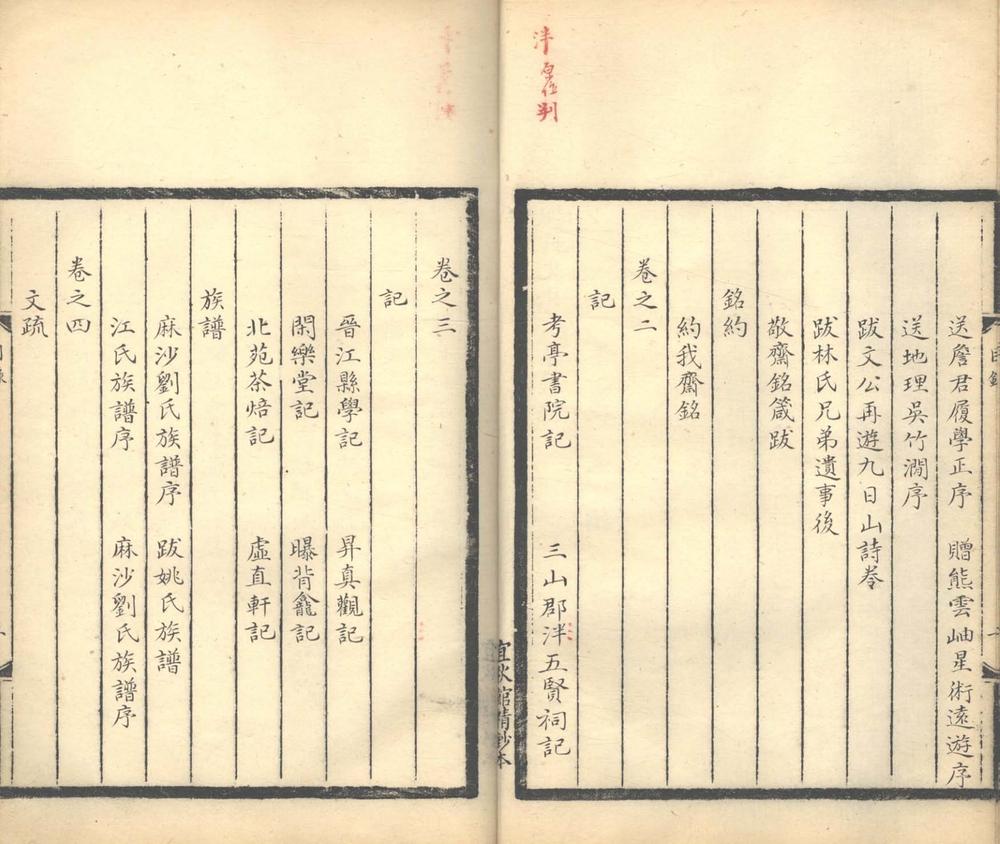 泮原作判
送詹君履學正序　贈熊雲岫星術遠遊序
送地理吳竹澗序
跋文公再遊九日山詩卷
跋林氏兄弟遺事後
敬齋銘箴跋
銘約
約我齋銘
卷之二
記
考亭書院記　三山郡泮五賢祠記
宜秋館精鈔本
卷之三
記
晉江縣學記　昇真觀記
閑樂堂記　曝背龕記
北苑茶焙記　虛直軒記
族譜
麻沙劉氏族譜序　跋姚氏族譜
江氏族譜序　麻沙劉氏族譜序
卷之四
文疏